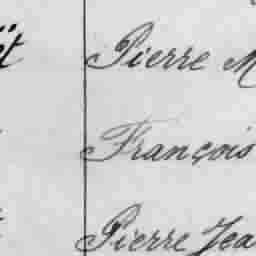 Pierre M
François
Pierre Jea